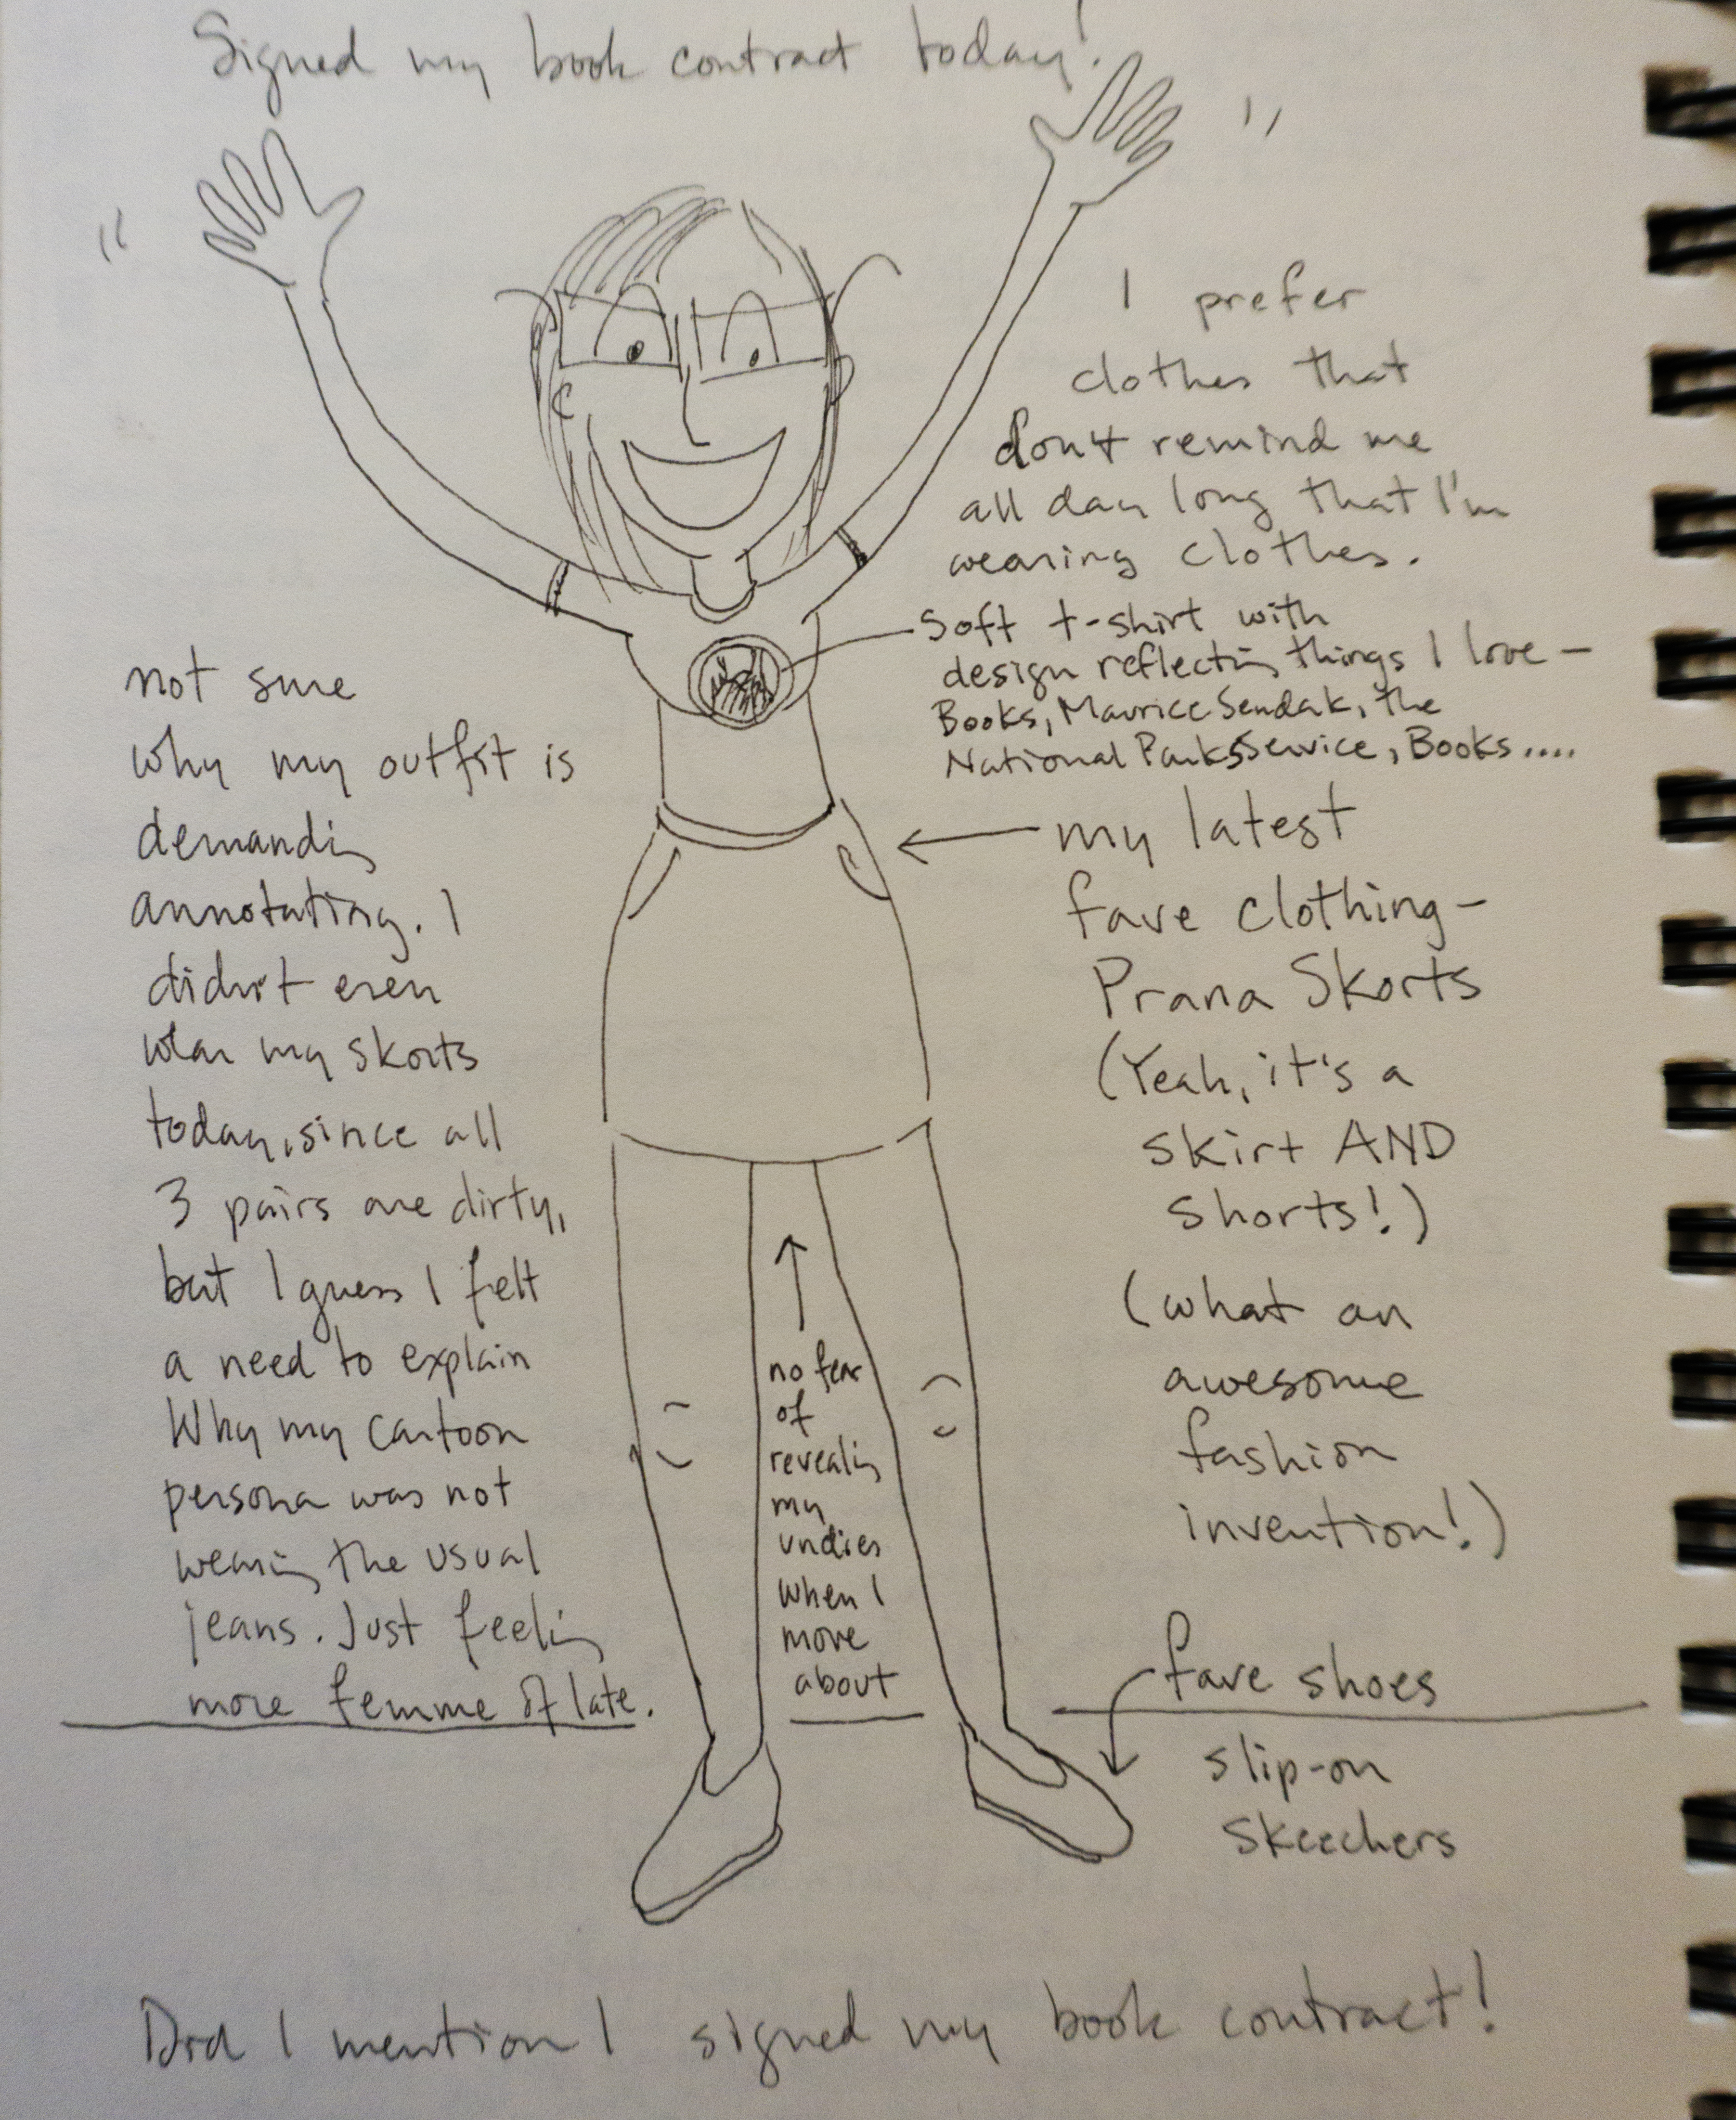 Signed my book contract today!
I prefer
clothes that
don't remind me
all day long that I'm
wearing clothes.
Soft t-shirt with
design reflecting things I love -
Books, Maurice Sendak, the
National Parks Service, Books....
my latest
fave clothing -
Prana Skorts
(Yeah, it's a
skirt AND
shorts!)
(what an
awesome
fashion
invention!)
not sure
why my outfit is
demanding
annotating. I
didn't even
wear my skorts
today, since all
3 pairs are dirty,
but I guess I felt
a need to explain
Why my cartoon
persona was not
wearing the usual
jeans. Just feeling
more femme of late.
no fear
of
revealing
my
undies
when I
move
about
fave shoes
slip-on
Skeechers
Did I mention I signed my book contract!